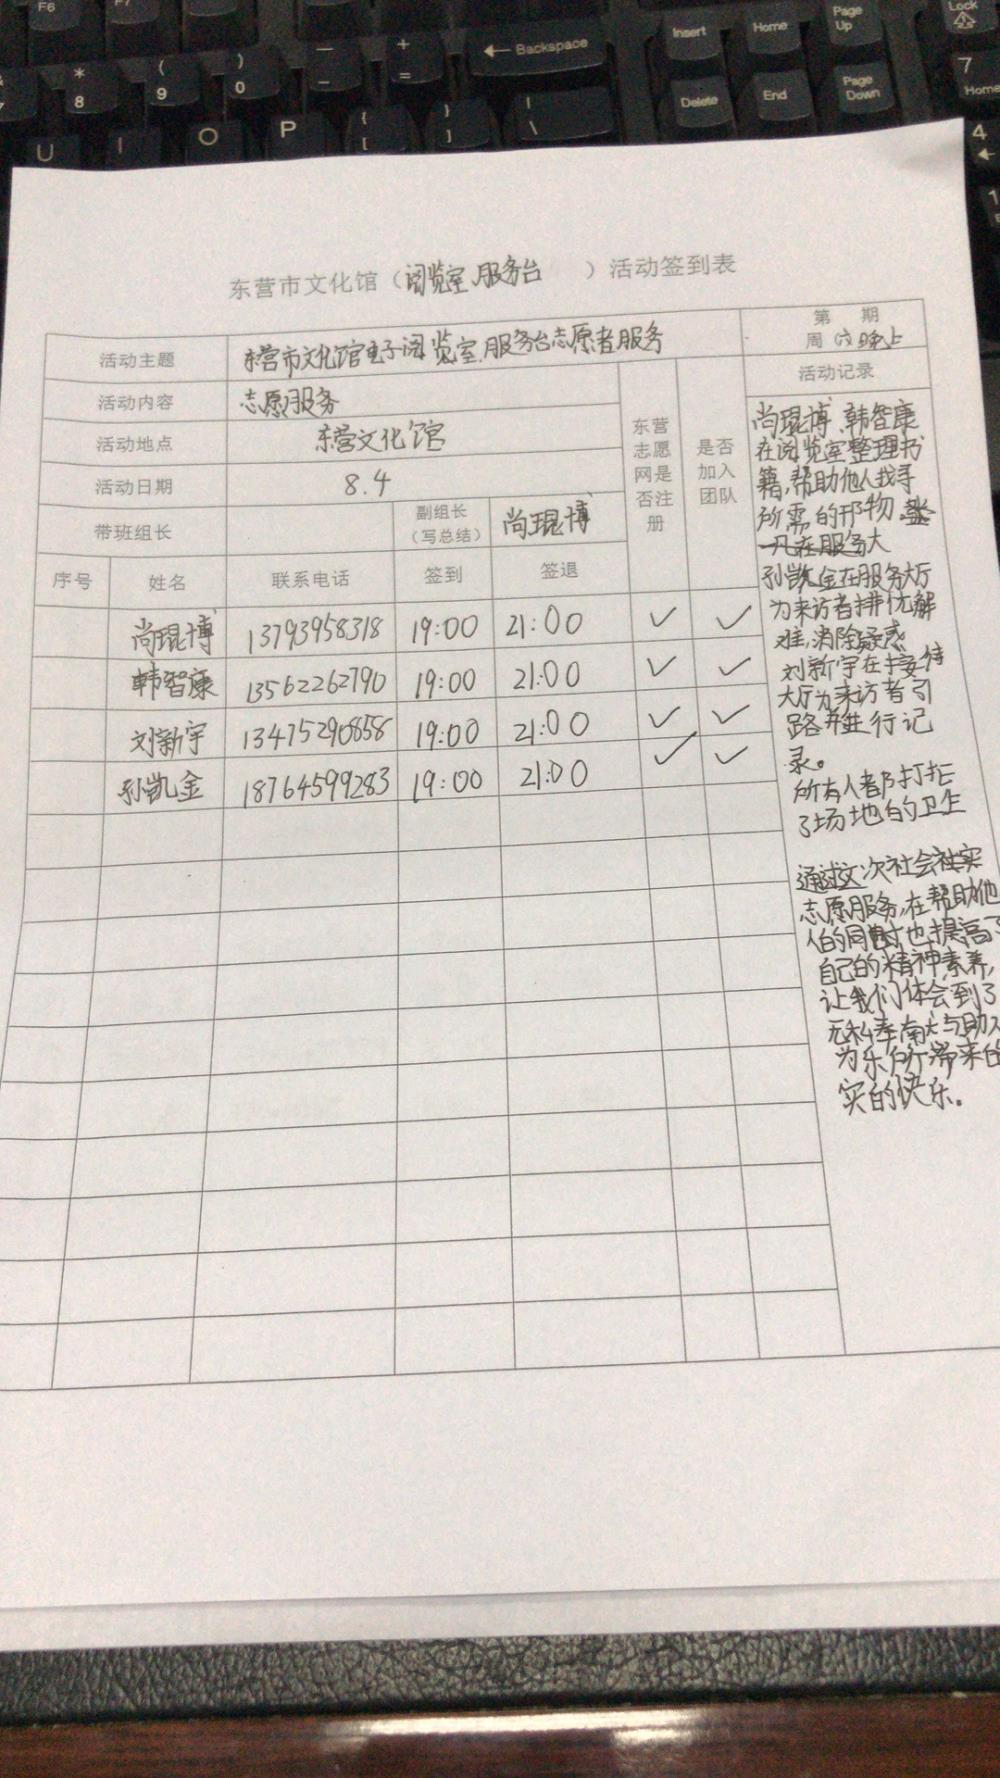 F6
F7
Backspace
Insert
Home
Page Up
Lock
* 8
( 9
) 0
— -
+ =
Delete
End
Page Down
7 Home
U
I
O
P
{ [
} ]
| \
4
1
东营市文化馆（阅览室、服务台 ）活动签到表
活动主题 东营市文化馆电子阅览室、服务台志愿者服务
第 期
周六晚上
活动内容 志愿服务
活动地点 东营文化馆
活动日期 8.4
带班组长
副组长（写总结） 尚琨博
东营志愿网是否注册
是否加入团队
活动记录
序号 姓名 联系电话 签到 签退
尚琨博 13793958318 19:00 21:00 ✓ ✓
韩智康 13562262790 19:00 21:00 ✓ ✓
刘新宇 13475290858 19:00 21:00 ✓ ✓
孙凯金 18764599283 19:00 21:00 ✓ ✓
尚琨博、韩智康
在阅览室整理书
籍,帮助他人找寻
所需的刊物.
在服务大
孙凯金在服务大厅
为来访者排忧解
难,消除疑惑
刘新宇在接待
大厅为来访者引
路并进行记
录。
所有人都打扫
了场地的卫生
通过这次社会社实
志愿服务,在帮助他
人的同时也提高了
自己的精神素养,
让我们体会到了
无私奉献与助人
为乐所带来的
实的快乐。